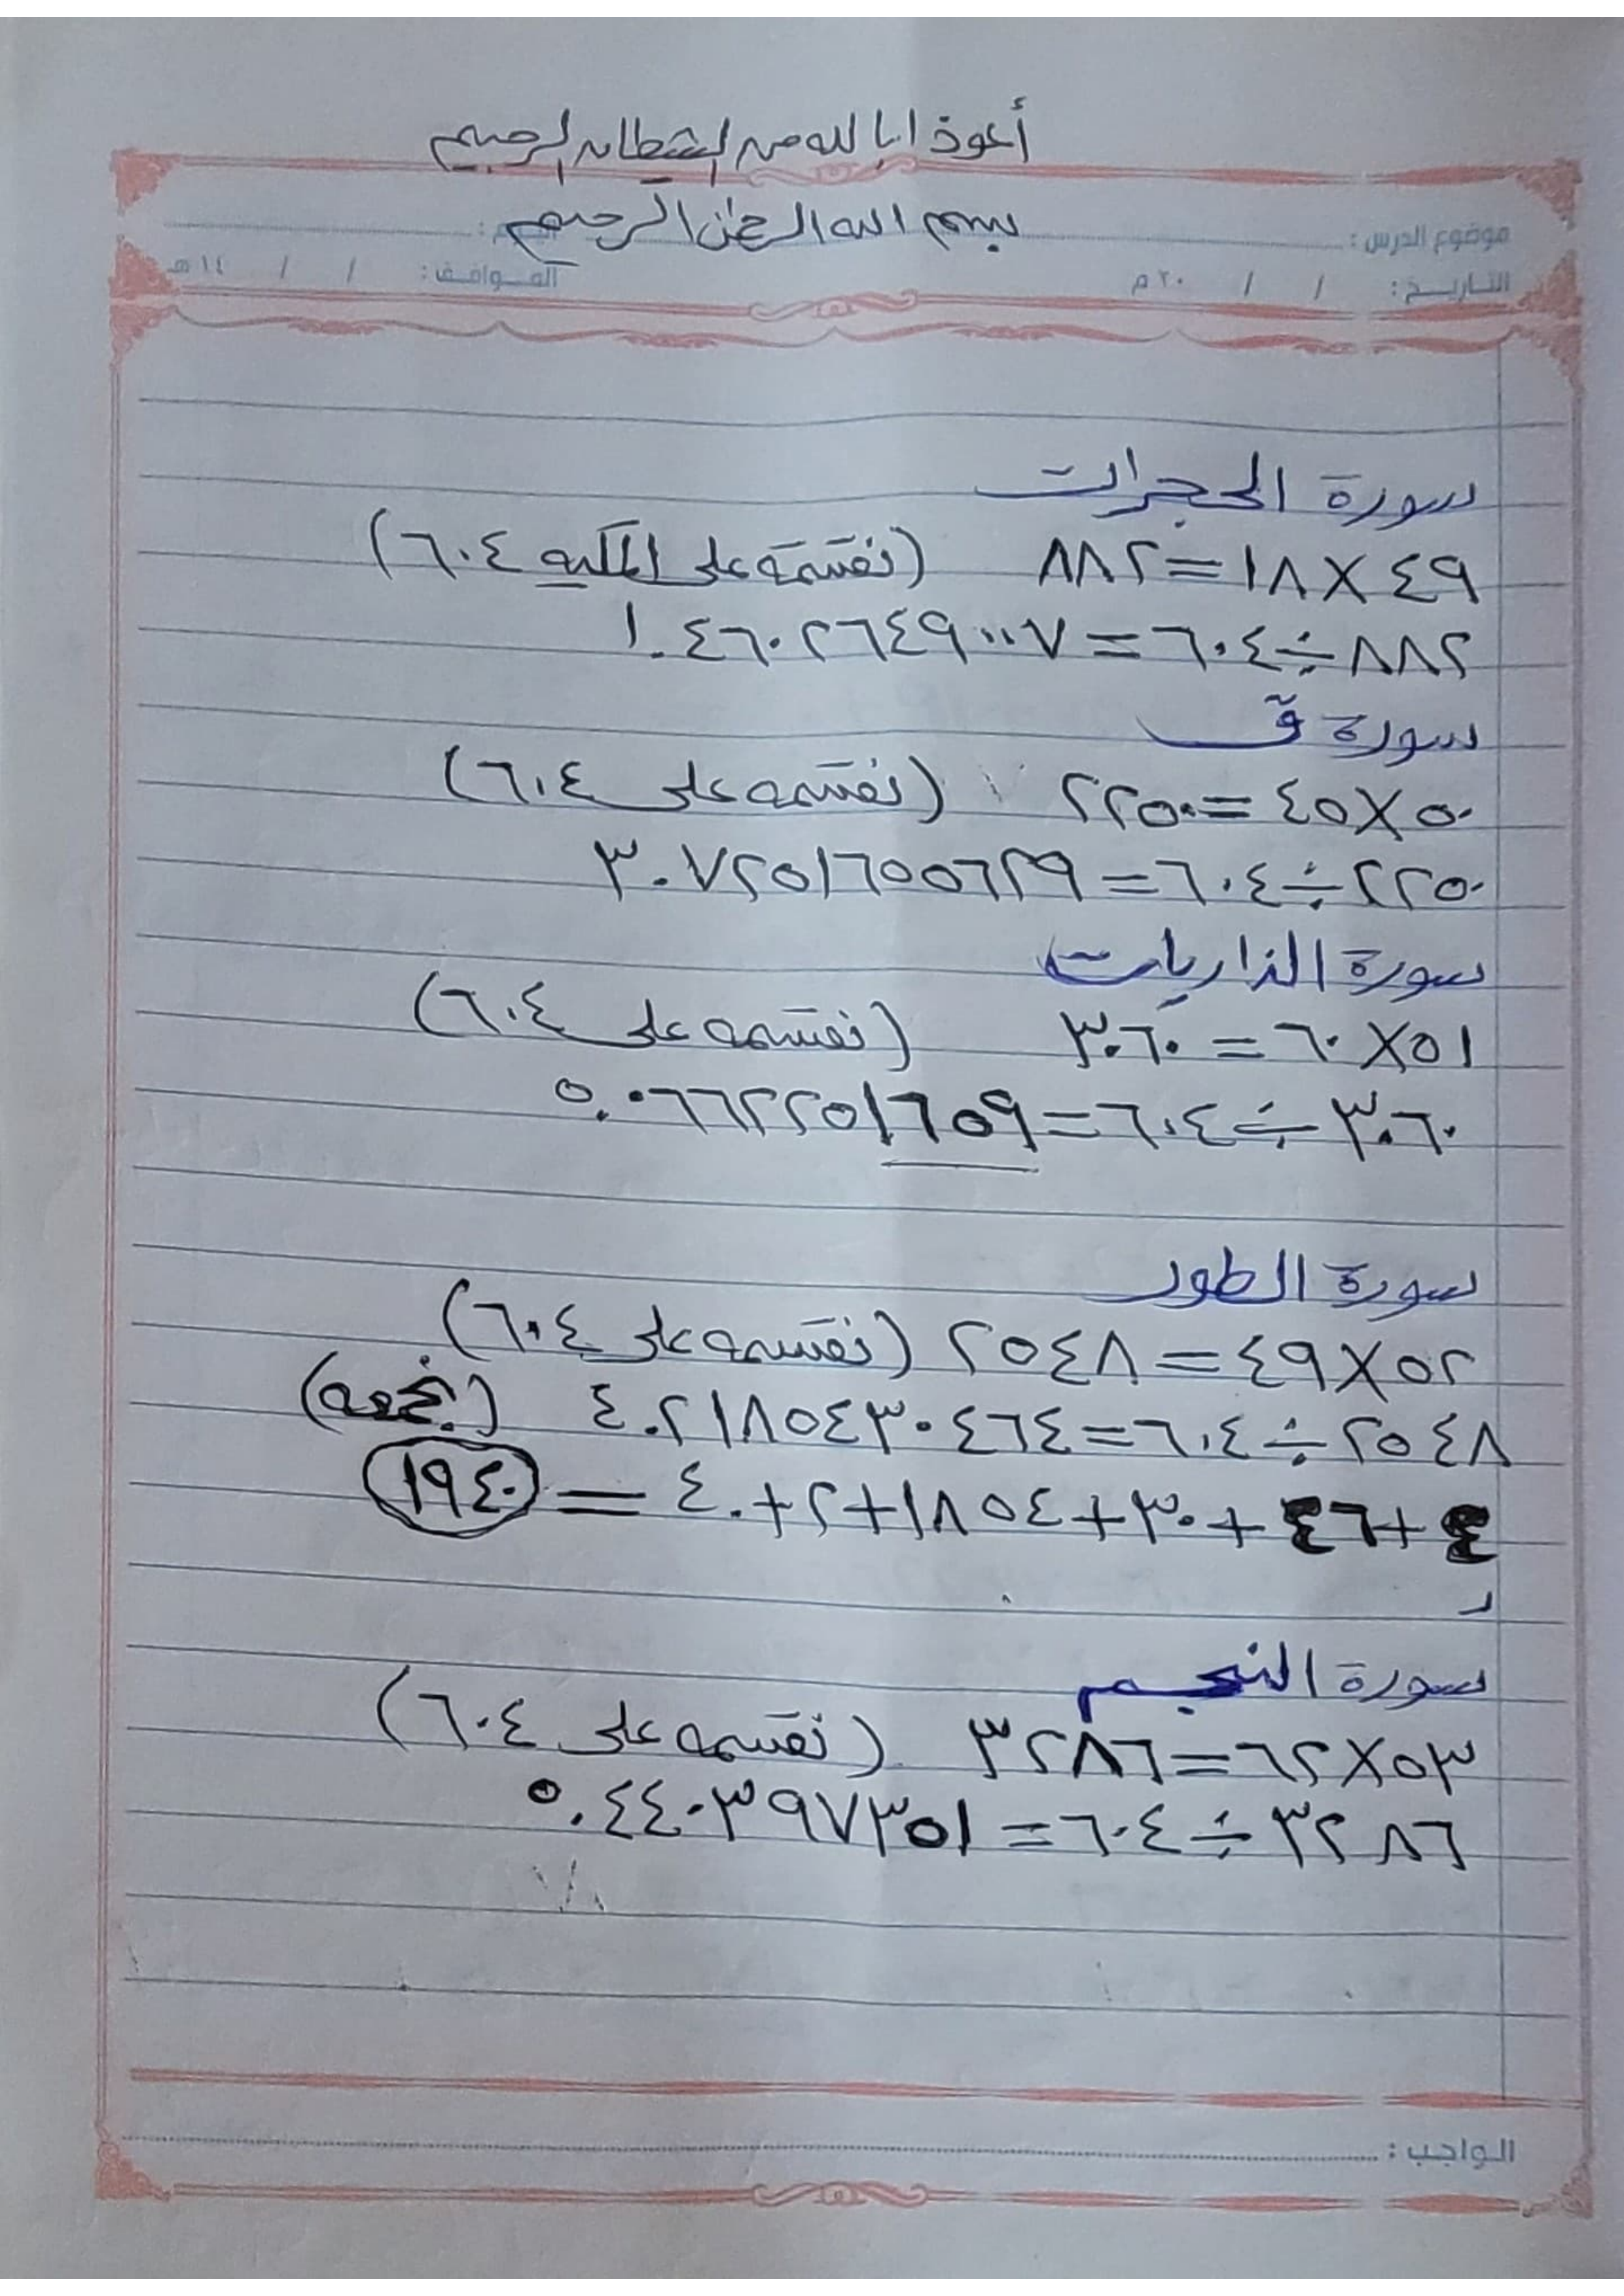 أعوذ ابا لله من الشيطان الرجيم
بسم الله الرحمن الرحيم
موضوع الدرس :
التاريـخ : / / ٢٠ م الموافـق : / / ١٤ هـ
سورة الحجرات
٤٩ × ١٨ = ٨٨٢ (نقسمة على المكيه ٦٠٤)
٨٨٢ ÷ ٦٠٤ = ١.٤٦٠٢٦٤٩٠٠٧
سورة قۤ
٥٠ × ٤٥ = ٢٢٥٠ (نقسمه على ٦٠٤)
٢٢٥٠ ÷ ٦٠٤ = ٣.٧٢٥١٦٥٥٦٢٩
سورة الذاريات
٥١ × ٦٠ = ٣٠٦٠ (نقسمه على ٦٠٤)
٣٠٦٠ ÷ ٦٠٤ = ٥.٠٦٦٢٢٥١٦٥٩
سورة الطور
٥٢ × ٤٩ = ٢٥٤٨ (نقسمه على ٦٠٤)
٢٥٤٨ ÷ ٦٠٤ = ٤.٢١٨٥٤٣٠٤٦٤ (نجمعه)
٤ + ٤٦ + ٣٠ + ١٨٥٤ + ٢ + ٤.٠ = ١٩٤٠
سورة النجم
٥٣ × ٦٢ = ٣٢٨٦ (نقسمه على ٦٠٤)
٣٢٨٦ ÷ ٦٠٤ = ٥.٤٤٠٣٩٧٣٥١
الـواجب :